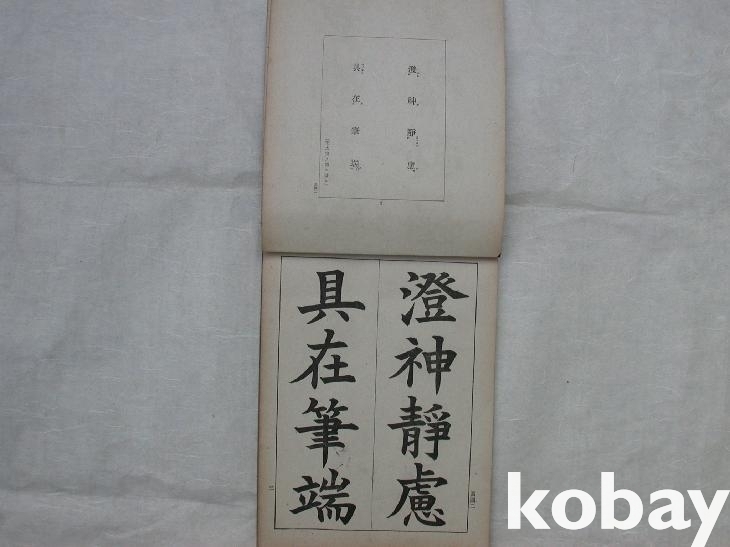 澄神靜慮
具在筆端
澄神靜慮
具在筆端
三
kobay